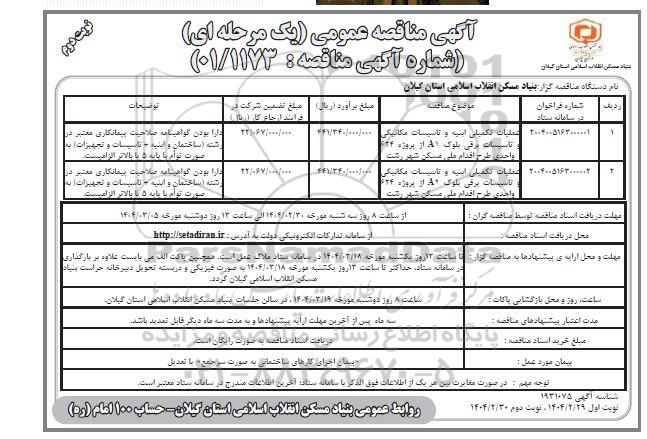 آگهی مناقصه عمومی (یک مرحله ای)
(شماره آگهی مناقصه : ۰۱/۱۱۷۳)
نوبت دوم
بنیاد مسکن انقلاب اسلامی استان گیلان
نام دستگاه مناقصه گزار:بنیاد مسکن انقلاب اسلامی استان گیلان
ردیف شماره فراخوان در سامانه ستاد موضوع مناقصه مبلغ برآورد (ریال) مبلغ تضمین شرکت در فرایند ارجاع کار (ریال) توضیحات
۱ ۲۰۰۴۰۰۵۱۶۳۰۰۰۰۰۱ عملیات تکمیلی ابنیه و تاسیسات مکانیکی و تاسیسات برقی بلوک A۱ از پروژه ۶۲۴ واحدی طرح اقدام ملی مسکن شهر رشت ۴۴۱/۳۴۰/۰۰۰/۰۰۰ ۲۲/۰۶۷/۰۰۰/۰۰۰ دارا بودن گواهینامه صلاحیت پیمانکاری معتبر در رشته (ساختمان و ابنیه + تاسیسات و تجهیزات) به صورت توأم با پایه ۵ یا بالاتر الزامیست.
۲ ۲۰۰۴۰۰۵۱۶۳۰۰۰۰۰۲ عملیات تکمیلی ابنیه و تاسیسات مکانیکی و تاسیسات برقی بلوک A۲ از پروژه ۶۲۴ واحدی طرح اقدام ملی مسکن شهر رشت ۴۴۱/۳۴۰/۰۰۰/۰۰۰ ۲۲/۰۶۷/۰۰۰/۰۰۰ دارا بودن گواهینامه صلاحیت پیمانکاری معتبر در رشته (ساختمان و ابنیه + تاسیسات و تجهیزات) به صورت توأم با پایه ۵ یا بالاتر الزامیست.
مهلت دریافت اسناد مناقصه توسط مناقصه گران : از ساعت ۸ روز سه شنبه مورخه ۱۴۰۴/۰۲/۳۰ الی ساعت ۱۳ روز دوشنبه مورخه ۱۴۰۴/۰۳/۰۵
محل دریافت اسناد مناقصه : از سامانه تدارکات الکترونیکی دولت به آدرس : http://setadiran.ir
مهلت و محل ارایه ی پیشنهادها به مناقصه گزار : تا ساعت ۱۳روز یکشنبه مورخه ۱۴۰۴/۰۳/۱۸ در سامانه ستاد ملاک عمل است. همچنین پاکت الف می بایست علاوه بر بارگذاری
در سامانه ستاد، حداکثر تا ساعت ۱۳روز یکشنبه مورخه ۱۴۰۴/۰۳/۱۸ به صورت فیزیکی و دربسته تحویل دبیرخانه حراست بنیاد
مسکن انقلاب اسلامی گیلان گردد.
ساعت، روز و محل بازگشایی پاکات : ساعت ۸ روز دوشنبه مورخه ۱۴۰۴/۰۳/۱۹ ، در سالن جلسات بنیاد مسکن انقلاب اسلامی استان گیلان.
مدت اعتبار پیشنهادهای مناقصه : سه ماه پس از آخرین مهلت ارایه پیشنهادها و به مدت سه ماه دیگر قابل تمدید باشد.
مبلغ خرید اسناد مناقصه : دریافت اسناد مناقصه به صورت رایگان است.
پیمان مورد عمل : «پیمان اجرای کارهای ساختمانی به صورت سرجمع» با تعدیل
توجه مهم : در صورت مغایرت بین هر یک از اطلاعات فوق الذکر با سامانه ستاد؛ آخرین اطلاعات مندرج در سامانه ستاد معتبر است.
شناسه آگهی ۱۹۳۱۰۷۵
نوبت اول ۱۴۰۴/۲/۲۹ ، نوبت دوم ۱۴۰۴/۲/۳۰
روابط عمومی بنیاد مسکن انقلاب اسلامی استان گیلان- حساب ۱۰۰ امام (ره)
ParsNamadData
پایگاه اطلاع رسانی مناقصه و مزایده
۰۲۱-۸۸۳۴۹۶۷۰-۵